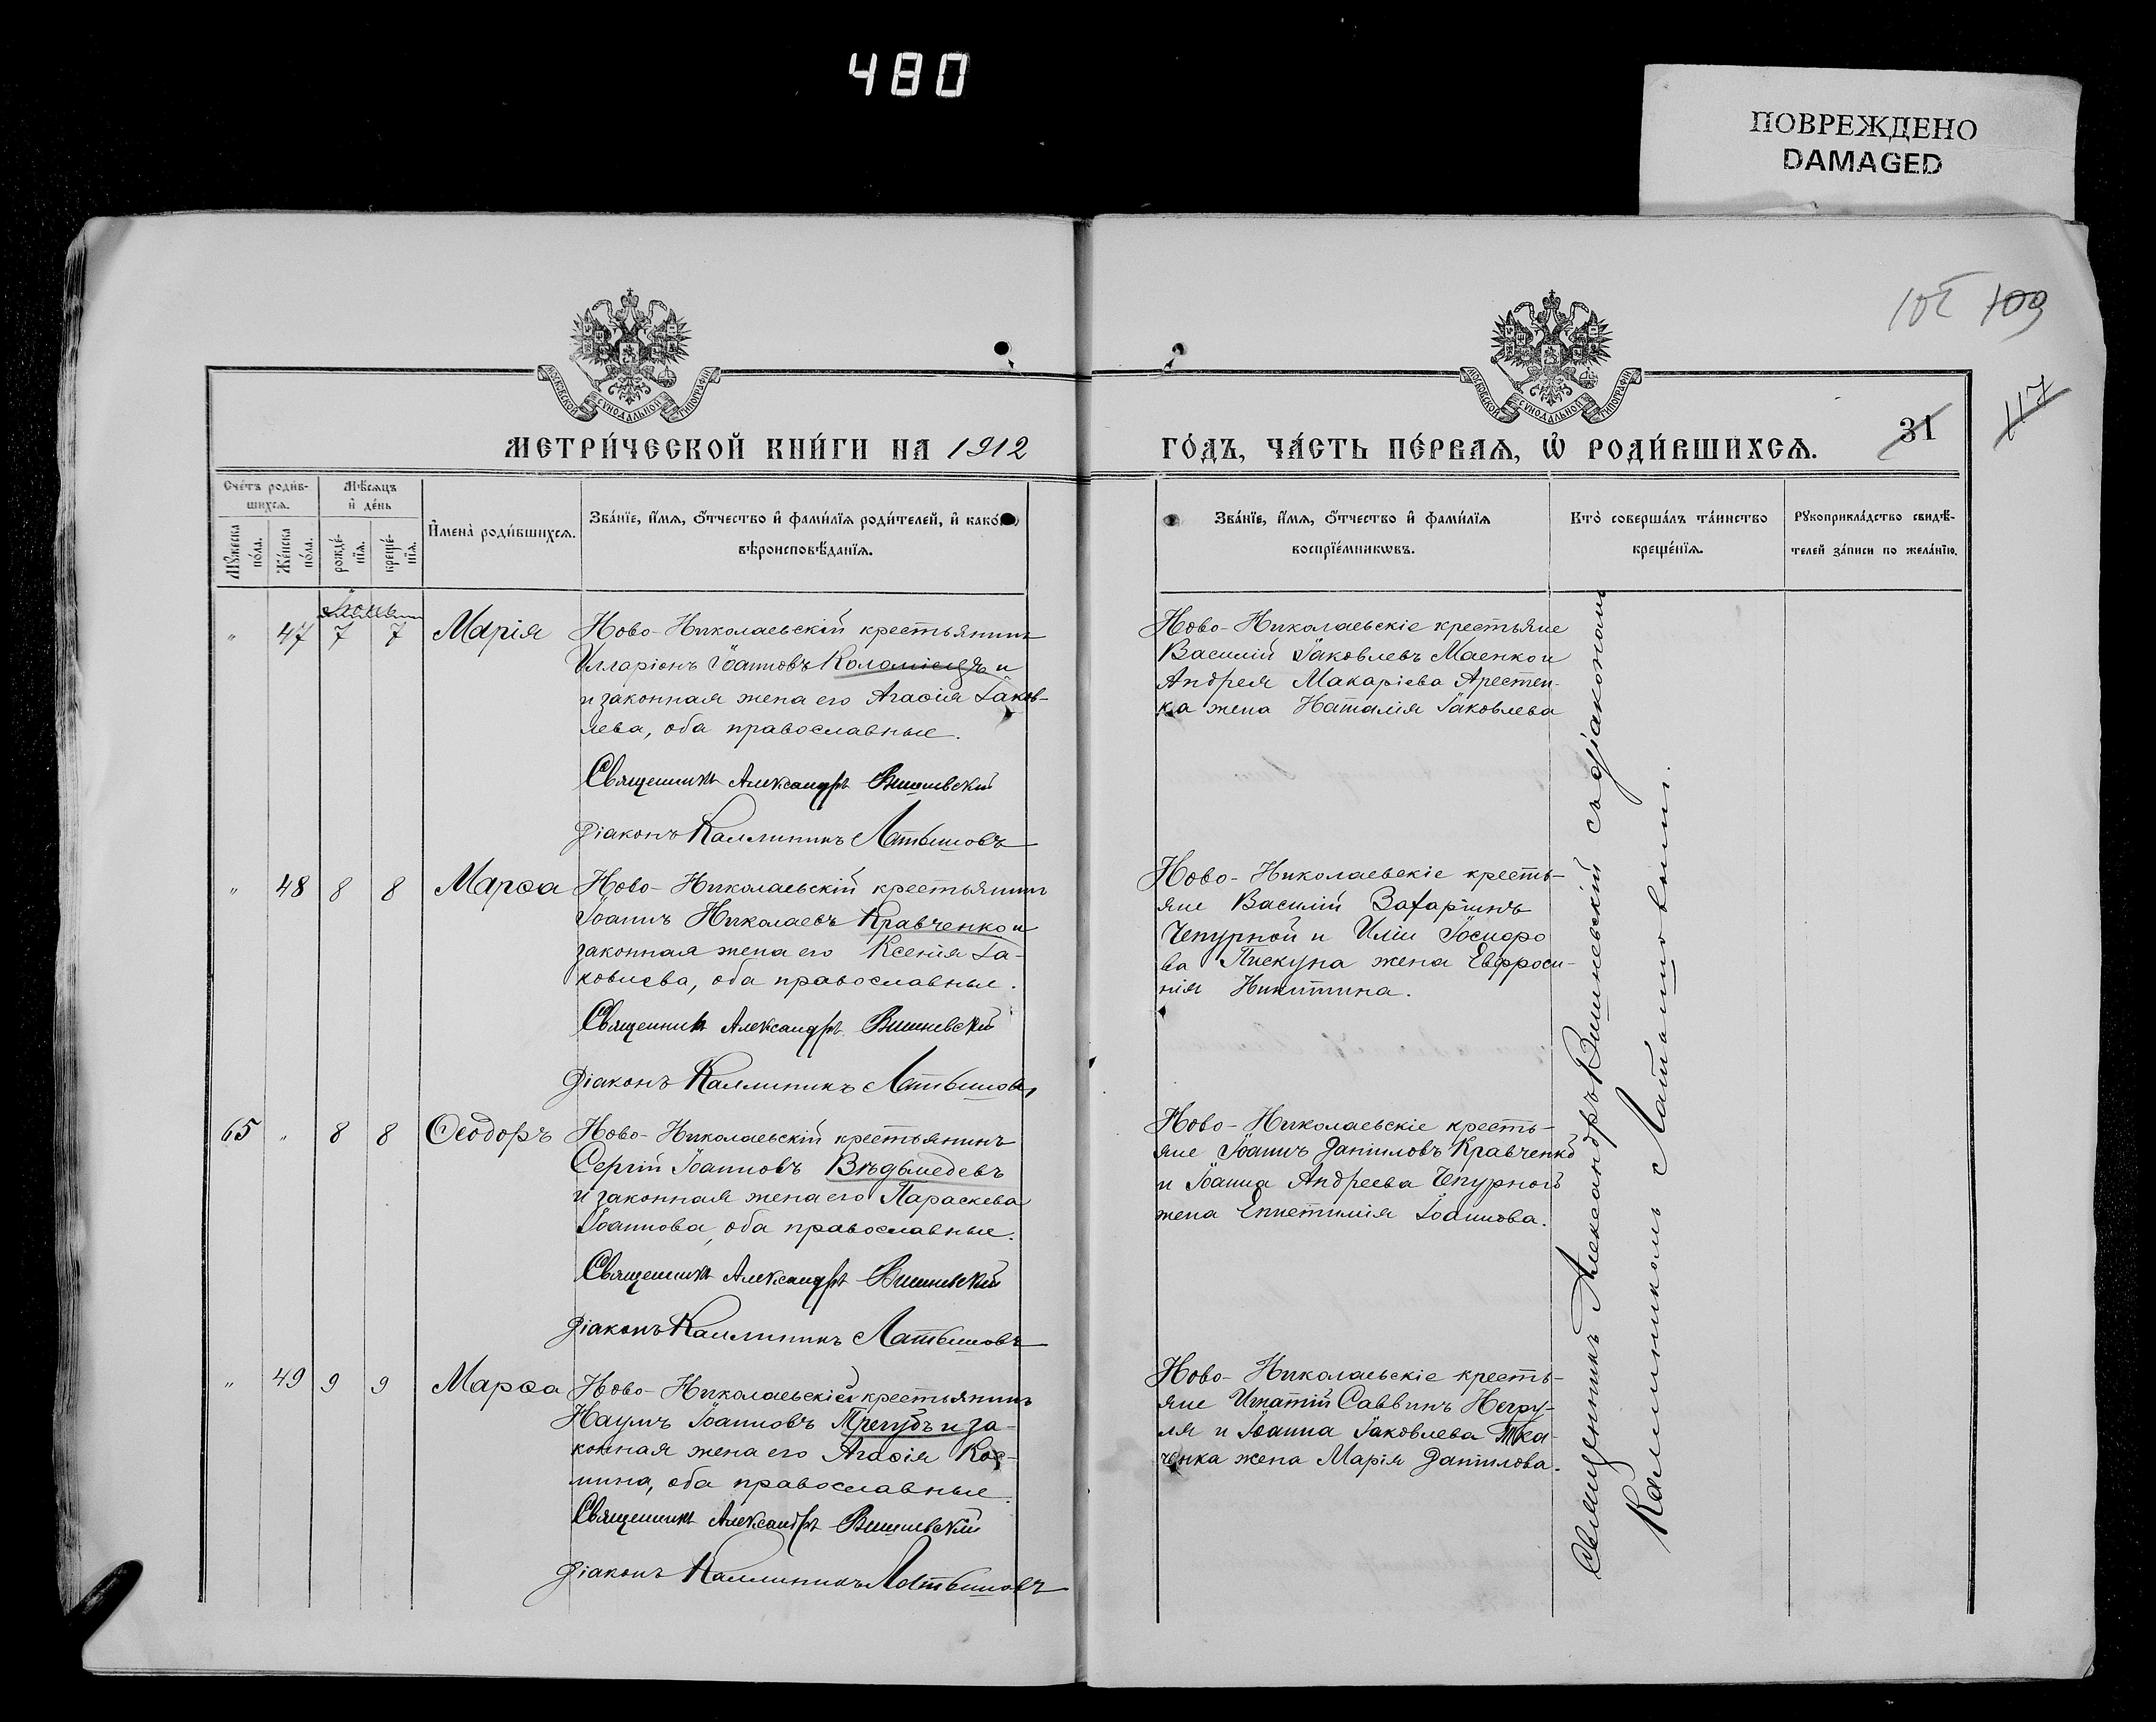 480
ПОВРЕЖДЕНО
DAMAGED
109
117
МОСКОВСКОЙ СУНОДАЛЬНОЙ ТИПОГРАФІИ
МОСКОВСКОЙ СУНОДАЛЬНОЙ ТИПОГРАФІИ
МЕТРИ́ЧЕСКОЙ КНИ́ГИ НА 1912
ГО́ДЪ, ЧА́СТЬ ПЕ́РВАѦ, Ѡ РОДИ́ВШИХСѦ.
31
Сче́тъ роди́в-
шихсѧ.
Мꙋжеска по́ла.
Же́нска по́ла.
Мѣ́сѧцъ
и де́нь
рожде́-
нїѧ.
креще́-
нїѧ.
Имена̀ роди́вшихсѧ.
Зва́нїе, и́мѧ, о́тчество и фами́лїѧ роди́телей, и како́
вѣроисповѣ́данїѧ.
Зва́нїе, и́мѧ, о́тчество и фами́лїѧ
воспрїе́мникѡвъ.
Кто̀ соверша́лъ та́инство
креще́нїѧ.
Рꙋкоприкла́дство свидѣ́-
телей за́писи по жела́нїю.
Іюнь
" 47 7 7 Марія
Ново-Николаевскій крестьянинъ
Илларіонъ Іоанновъ Коломіецъ и
и законная жена его Агаѳія Іаков-
лева, оба православные.
Священникъ Александръ Вишневскій
Діаконъ Каллиникъ Латышовъ
Ново-Николаевскіе крестьяне
Василій Іаковлевъ Маенко и
Андрея Макаріева Арестен-
ка жена Наталія Іаковлева
" 48 8 8 Марѳа
Ново-Николаевскій крестьянинъ
Іоаннъ Николаевъ Кравченко и
законная жена его Ксенія Іа-
ковлева, оба православные.
Священникъ Александръ Вишневскій
Діаконъ Каллиникъ Латышовъ
Ново-Николаевскіе кресть-
яне Василій Захаріинъ
Чепурной и Иліи Іосифо
ва Пискуна жена Евфроси-
нія Никитина.
65 " 8 8 Ѳеодоръ
Ново-Николаевскій крестьянинъ
Сергій Іоанновъ Вѣдьмедевъ
и законная жена его Параскева
Іоаннова, оба православные.
Священникъ Александръ Вишневскій
Діаконъ Каллиникъ Латышовъ
Ново-Николаевскіе кресть-
яне Іоаннъ Даниловъ Кравченко
и Іоанна Андреева Чепурного
жена Епистимія Іоаннова.
" 49 9 9 Марѳа
Ново-Николаевскій крестьянинъ
Наумъ Іоанновъ Трегубъ и за-
конная жена его Агаѳія Кос-
мина, оба православные.
Священникъ Александръ Вишневскій
Діаконъ Каллиникъ Латышовъ
Ново-Николаевскіе кресть-
яне Игнатій Саввинъ Негру-
ля и Іоанна Іаковлева Тка-
ченка жена Марія Данилова.
Священникъ Александръ Вишневскій съ діакономъ
Каллиникомъ Латышовымъ.